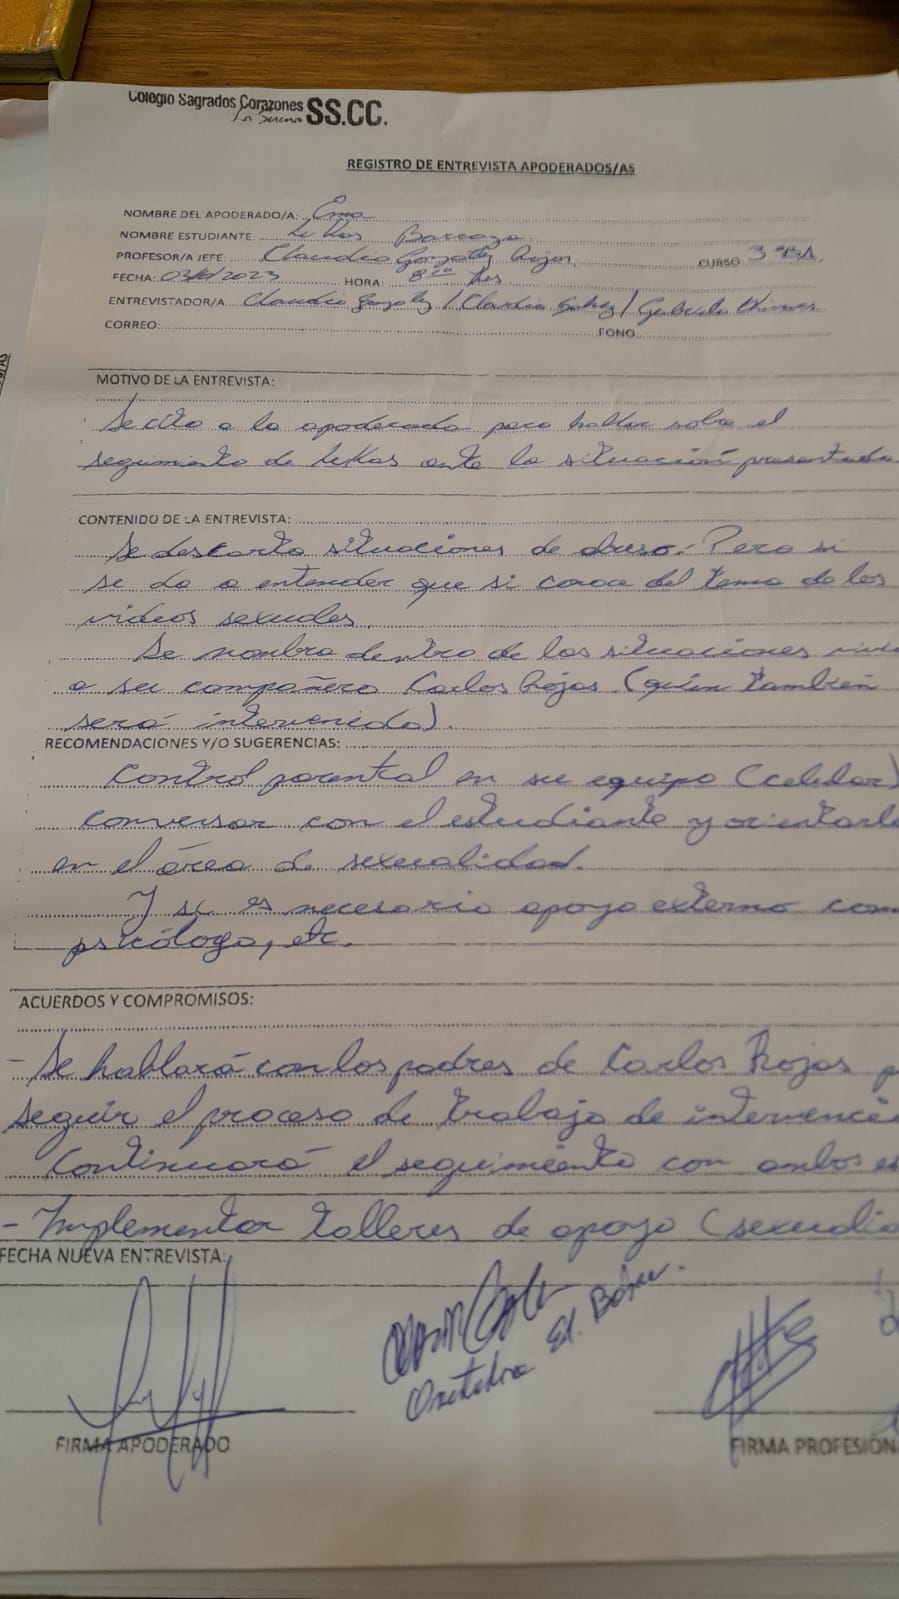 Colegio Sagrados Corazones SS.CC.
La Serena
REGISTRO DE ENTREVISTA APODERADOS/AS
NOMBRE DEL APODERADO/A: Ema
NOMBRE ESTUDIANTE: Lukas Barraza
PROFESOR/A JEFE: Claudio González Rojas CURSO 3°BA.
FECHA: 03/ /2023 HORA: 8 hrs
ENTREVISTADOR/A Claudio González / Claudia / Gabriela
CORREO: FONO
MOTIVO DE LA ENTREVISTA:
Se cita a la apoderada para hablar sobre el
seguimiento de Lukas ante la situación presentada
CONTENIDO DE LA ENTREVISTA:
Se descarta situaciones de abuso. Pero si
se da a entender que si conoce del tema de los
videos sexuales.
Se nombra dentro de las situaciones
a su compañero Carlos Rojas (quien también
será intervenido).
RECOMENDACIONES Y/O SUGERENCIAS:
Control parental en su equipo (celular)
conversar con el estudiante y orientarle
en el área de sexualidad.
Y si es necesario apoyo externo com
psicólogo, etc.
ACUERDOS Y COMPROMISOS:
- Se hablará con los padres de Carlos Rojas p
seguir el proceso de trabajo de intervenció
Continuará el seguimiento con ambos es
- Implementar talleres de apoyo (sexualid
FECHA NUEVA ENTREVISTA:
FIRMA APODERADO
FIRMA PROFESION